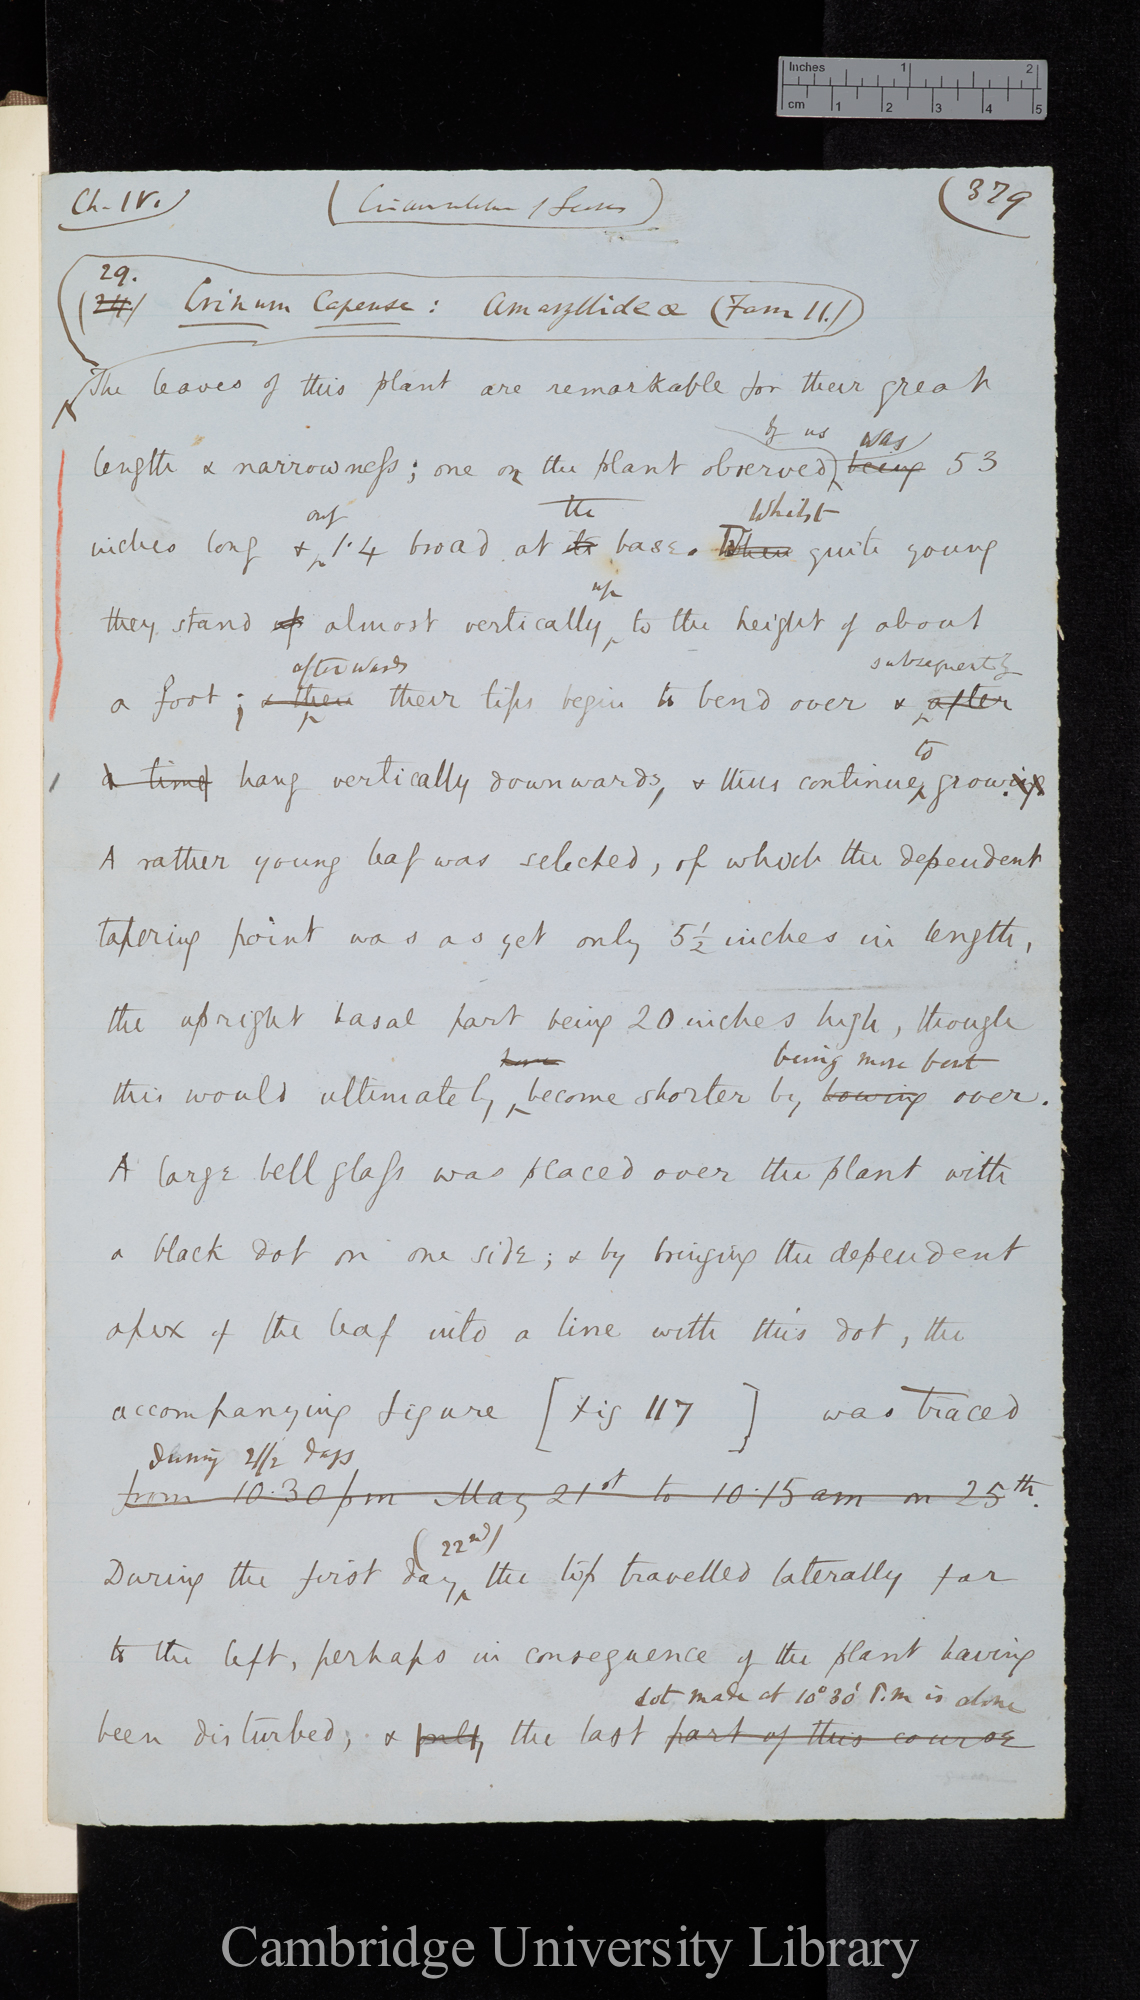 Inches 1 2
cm 1 2 3 4 5
Ch. IV. (Circumnutation of Leaves) (379
29.
(24) Crinum Capense: Amaryllideæ (Fam 11.)
The leaves of this plant are remarkable for their great
by us was
length & narrowness; one on the plant observed, being 53
the Whilst
inches long & 1·4 broad at its base. When quite young
up
they stand up almost vertically to the height of about
afterwards subsequently
a foot; & then their tips begin to bend over & after
to
a time hang vertically downwards, & thus continue growing
A rather young leaf was selected, of which the dependent
tapering point was as yet only 5½ inches in length,
the upright basal part being 20 inches high, though
have being more bent
this would ultimately become shorter by bowing over.
A large bell glass was placed over the plant with
a black dot on one side; & by bringing the dependent
apex of the leaf into a line with this dot, the
accompanying figure [fig 117 ] was traced
During 2½ days
from 10·30 pm May 21st to 10·15 am on 25th.
(22nd)
During the first day, the tip travelled laterally far
to the left, perhaps in consequence of the plant having
dot made at 10° 30' P.m is alone
been disturbed; & the last part of this course
Cambridge University Library